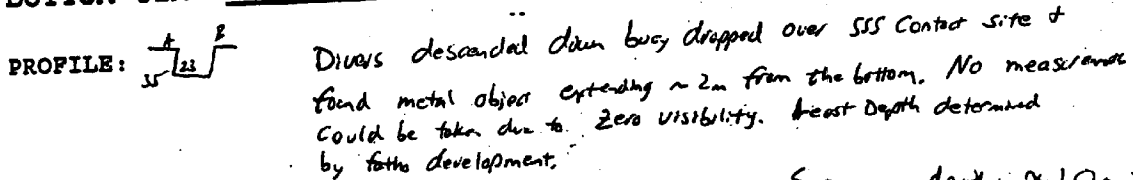 PROFILE: A B
35 23
Divers descended down buoy dropped over SSS Contact site &
found metal object extending ~ 2m from the bottom. No measurements
Could be taken due to Zero visibility. Least Depth determined
by fatho development.